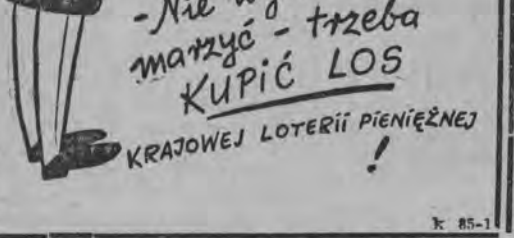 - Nie
marzyć - trzeba
KUPIĆ LOS
KRAJOWEJ LOTERII PIENIĘŻNEJ
!
k 85-1